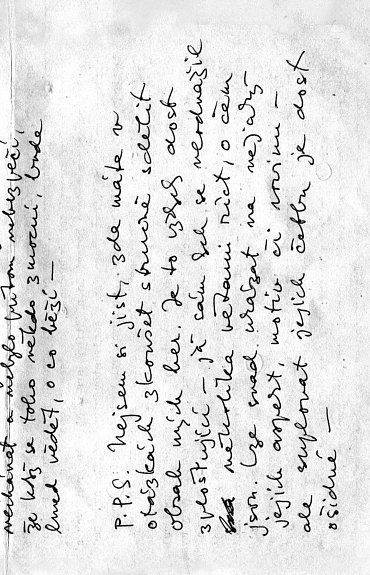 nechávat a nebylo přitom nebezpečí,
že když se toho někdo zmocní, bude
hned vědět, o co běží —
P.P.S: Nejsem si jist, zda máte v
otázkách zkoušet stručně sdělit
obsah mých her. Je to vždycky dost
zplošťující — já sám bych se neodvážil
několika větami říct, o čem
jsou. Lze snad ukázat na nějaký
jejich aspekt, motiv či rovinu —
ale suplovat jejich četbu je dost
ošidné —